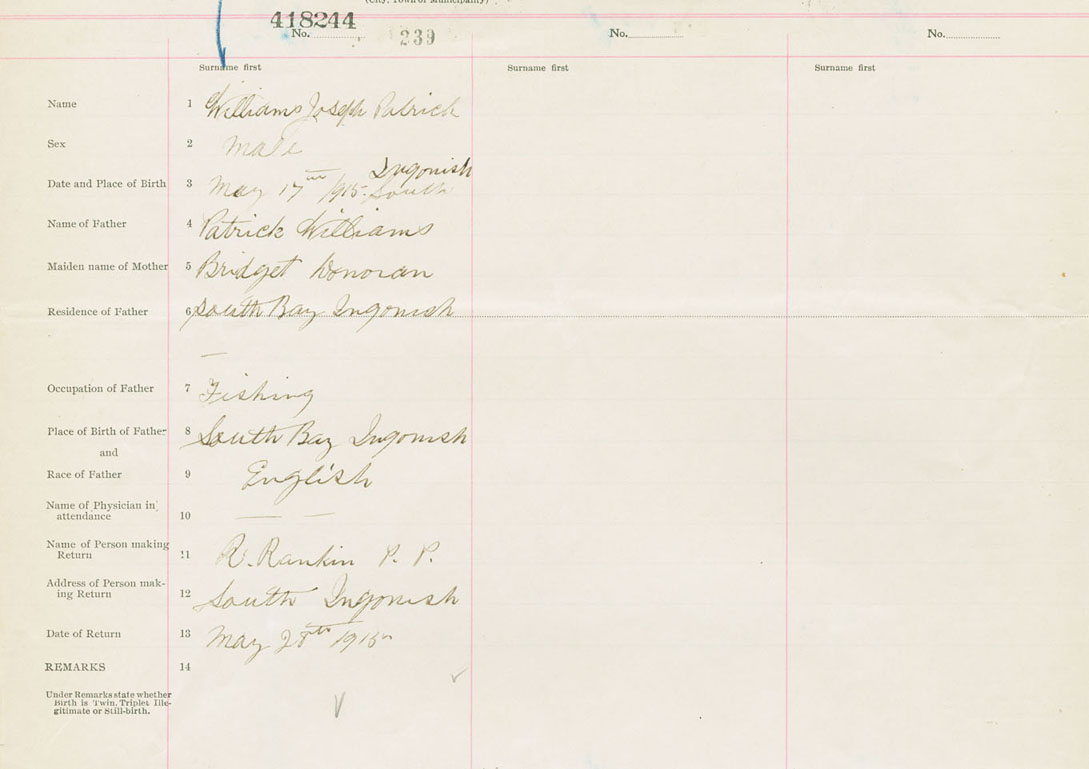 (City, Town or Municipality)
418244
No. 239 No. No.
Surname first Surname first Surname first
Name 1 Williams Joseph Patrick
Sex 2 Male
Ingonish
Date and Place of Birth 3 May 17th 1915. South
Name of Father 4 Patrick Williams
Maiden name of Mother 5 Bridget Donovan
Residence of Father 6 South Bay Ingonish
Occupation of Father 7 Fishing
Place of Birth of Father 8 South Bay Ingonish
and
Race of Father 9 English
Name of Physician in
attendance 10 — —
Name of Person making
Return 11 R. Rankin P. P.
Address of Person mak-
ing Return 12 South Ingonish
Date of Return 13 May 28th 1915
REMARKS 14
Under Remarks state whether
Birth is Twin, Triplet Ille-
gitimate or Still-birth.